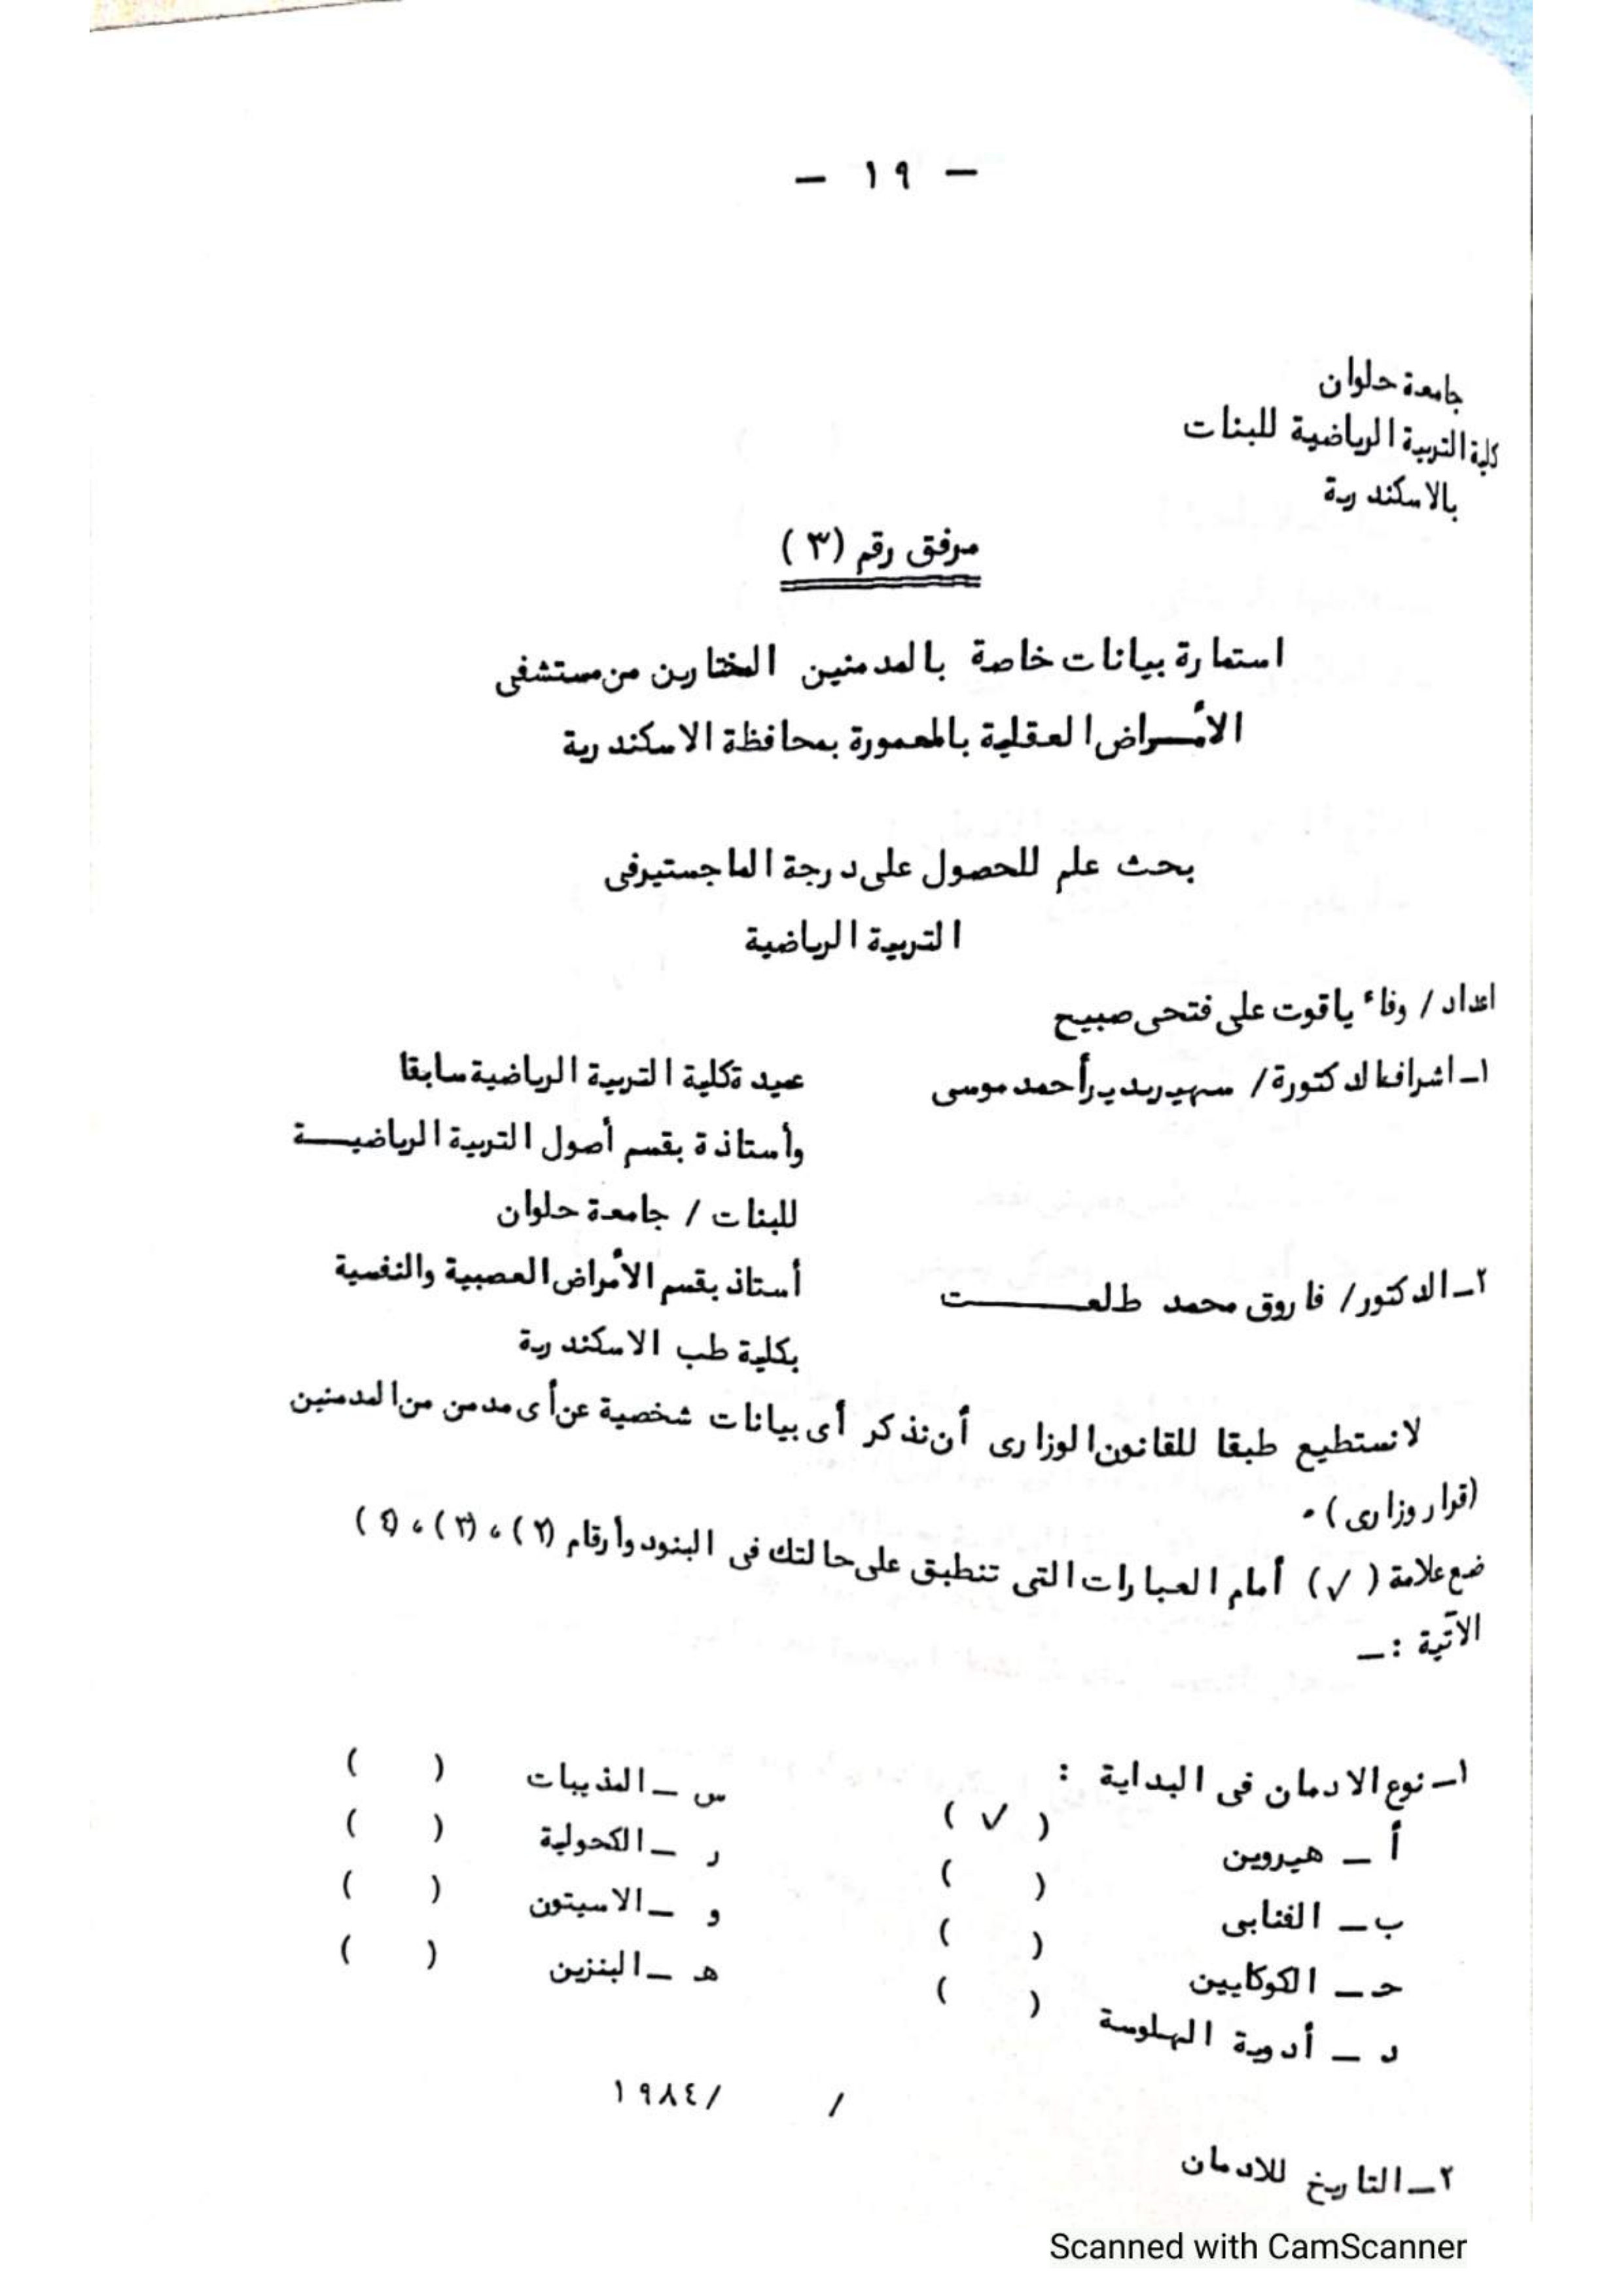 — ١٩ —
جامعة حلوان
كلية التربية الرياضية للبنات
بالاسكندرية
مرفق رقم (٣)
استمارة بيانات خاصة بالمدمنين المختارين من مستشفى
الأمراض العقلية بالمعمورة بمحافظة الاسكندرية
بحث علم للحصول على درجة الماجستير فى
التربية الرياضية
اعداد / وفاء ياقوت على فتحى صبيح
١ـ اشراف الدكتورة / سهير بدير أحمد موسى عميدة كلية التربية الرياضية سابقا
وأستاذة بقسم أصول التربية الرياضيــة
للبنات / جامعة حلوان
٢ـ الدكتور / فاروق محمد طلعــــــت أستاذ بقسم الأمراض العصبية والنفسية
بكلية طب الاسكندرية
لانستطيع طبقا للقانون الوزارى أن نذكر أى بيانات شخصية عن أى مدمن من المدمنين
(قرار وزارى) ٠
ضع علامة (✓) أمام العبارات التى تنطبق على حالتك فى البنود وأرقام (٢) ، (٣) ، (٤)
الآتية :ـ
١ـ نوع الادمان فى البداية :
أ ـ هيروين ( ✓ ) س ـ المذيبات ( )
ب ـ القنابى ( ) ر ـ الكحولية ( )
حـ ـ الكوكايين ( ) و ـ الاسيتون ( )
د ـ أدوية الهلوسة ( ) هـ ـ البنزين ( )
٢ـ التاريخ للادمان / /١٩٨٤
Scanned with CamScanner